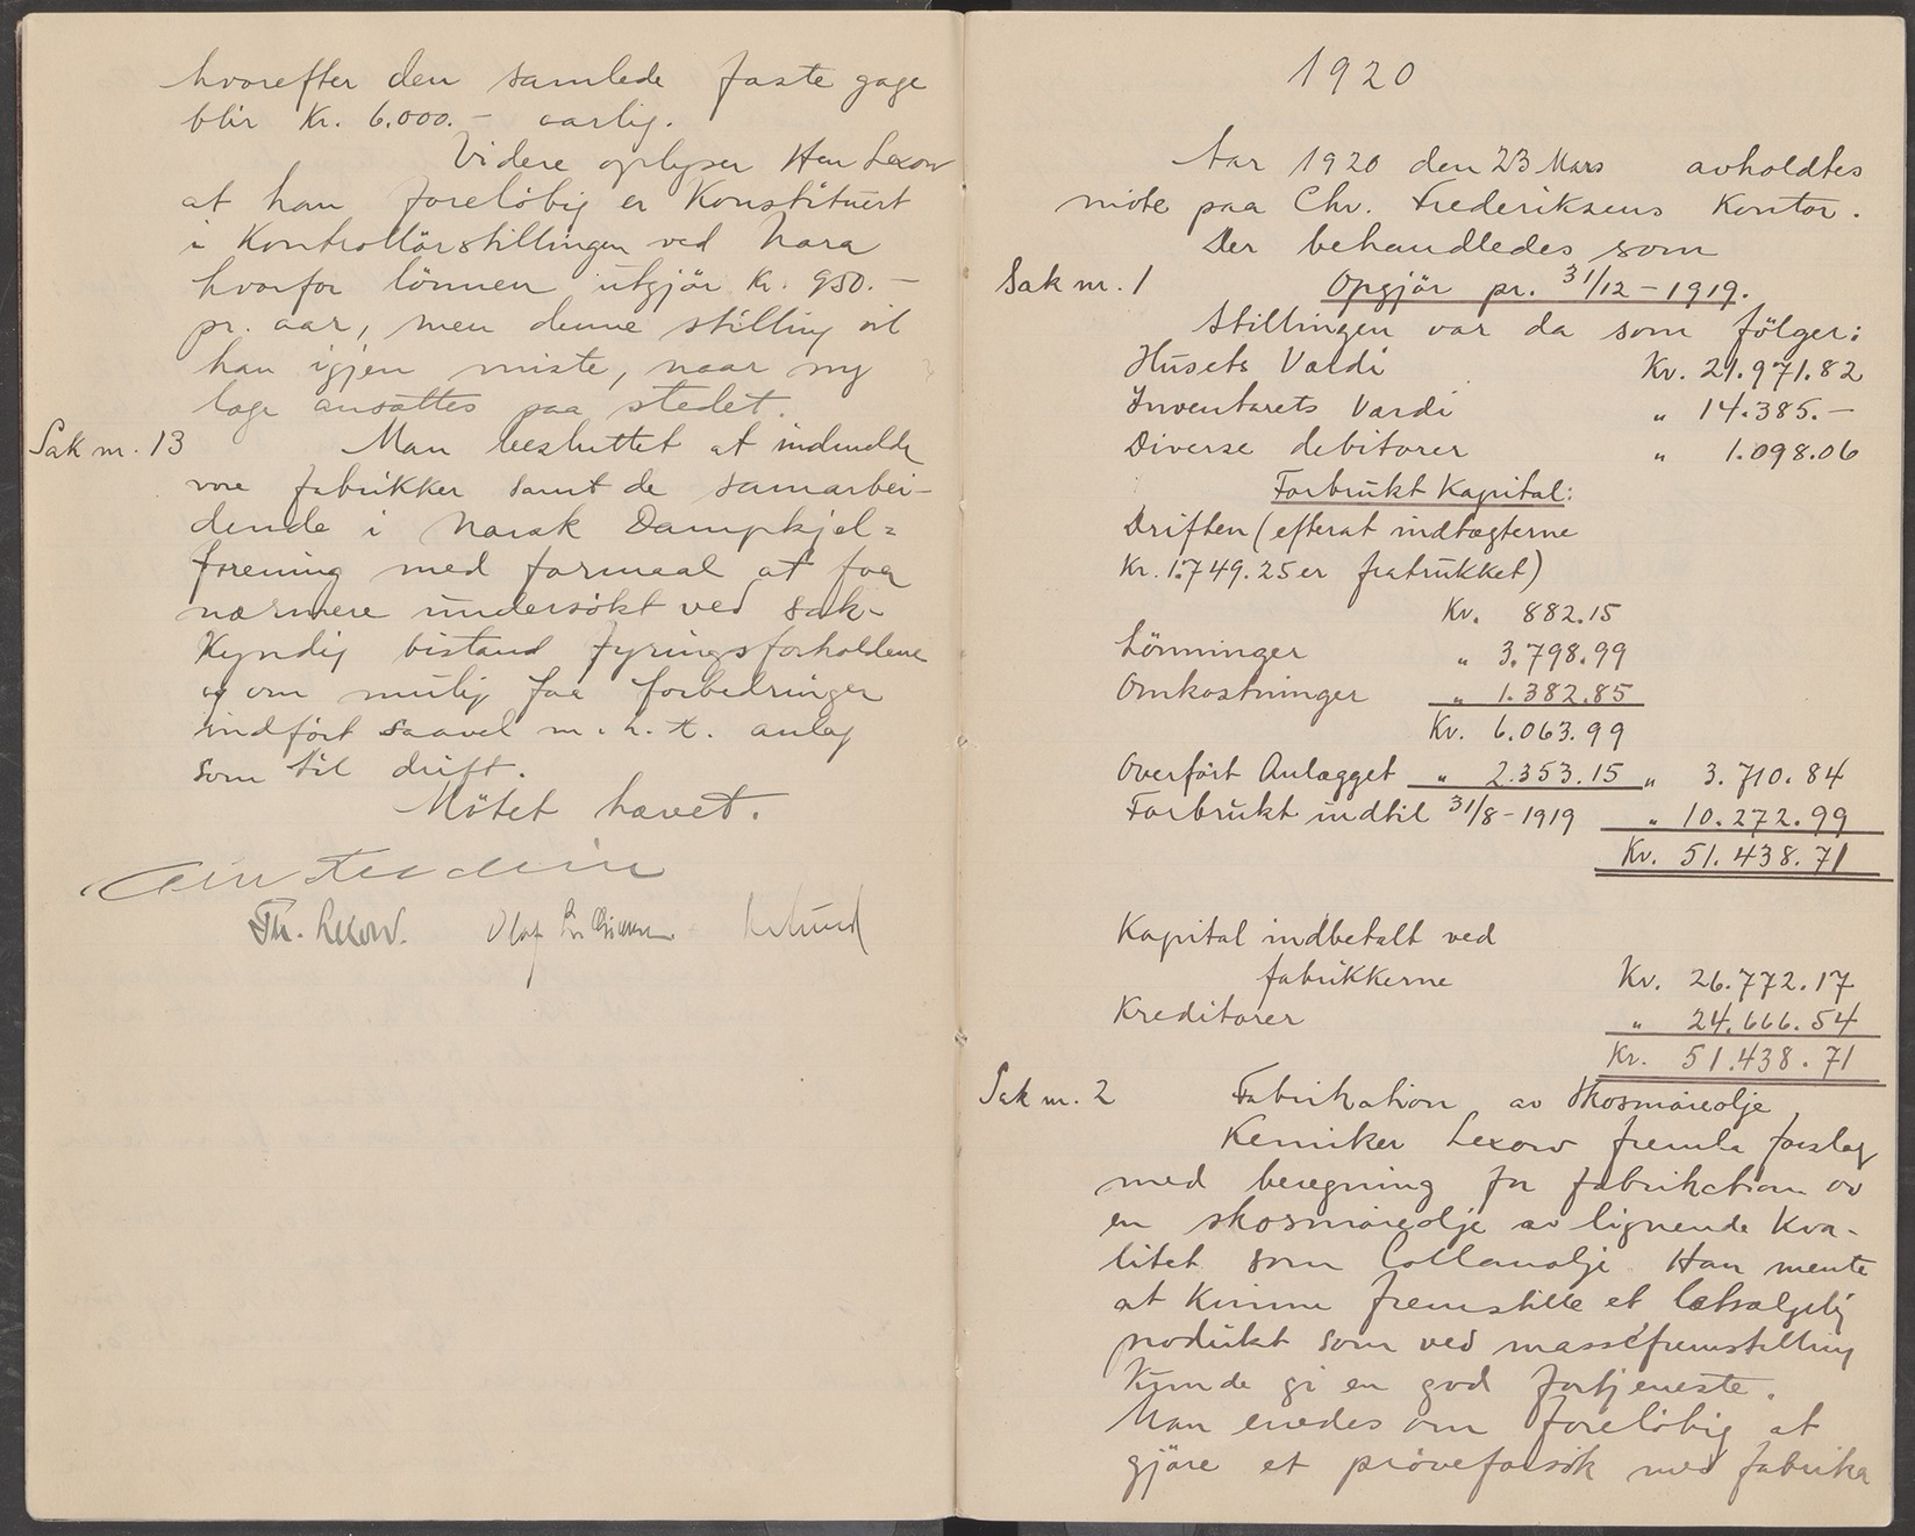 hvorefter den samlede faste gage
blir Kr. 6.000.- aarlig.
Videre oplyser Herr Lexow
at han foreløbig er Konstituert
i Kontrollörstillingen ved Nora
hvorfor lönnen utgjör Kr. 950.-
pr. aar, men denne stilling vil
han igjen miste, naar ny
læge ansættes paa stedet.
Sak nr. 13 Man besluttet at indmelde
vore fabrikker samt de samarbei-
dende i Norsk Dampkjel=
forening med formaal at faa
nærmere undersökt ved sak-
Kyndig bistand fyringsforholdene
og om mulig faa forbedringer
indfört saavel m.h.t. anlæg
som til drift.
Mötet hævet.
Th. Lexow. Olaf
1920
Aar 1920 den 23 Mars avholdtes
möte paa Chr. Frederiksens Kontor.
Der behandledes som
Sak nr. 1 Opgjör pr. 31/12-1919.
Stillingen var da som fölger:
Husets Værdi Kr. 21.971.82
Inventarets Værdi " 14.385.-
Diverse debitorer " 1.098.06
Forbrukt Kapital:
Driften (efterat indtægterne
Kr. 1.749.25 er fratrukket)
Kr. 882.15
Lönninger " 3.798.99
Omkostninger " 1.382.85
Kr. 6.063.99
Overfört Anlægget " 2.353.15 " 3.710.84
Forbrukt indtil 31/8-1919 " 10.272.99
Kr. 51.438.71
Kapital indbetalt ved
fabrikkerne Kr. 26.772.17
Kreditorer " 24.666.54
Kr. 51.438.71
Sak nr. 2 Fabrikation av Skosmöreolje
Kemiker Lexow fremla forslag
med beregning for fabrikation av
en skosmöreolje av lignende Kva-
litet som Collanolje. Han mente
at Kunne fremstille et letsælgelig
produkt som ved massefremstilling
Kunde gi en god fortjeneste.
Man enedes om foreløbig at
gjöre et pröveforsök med fabrika